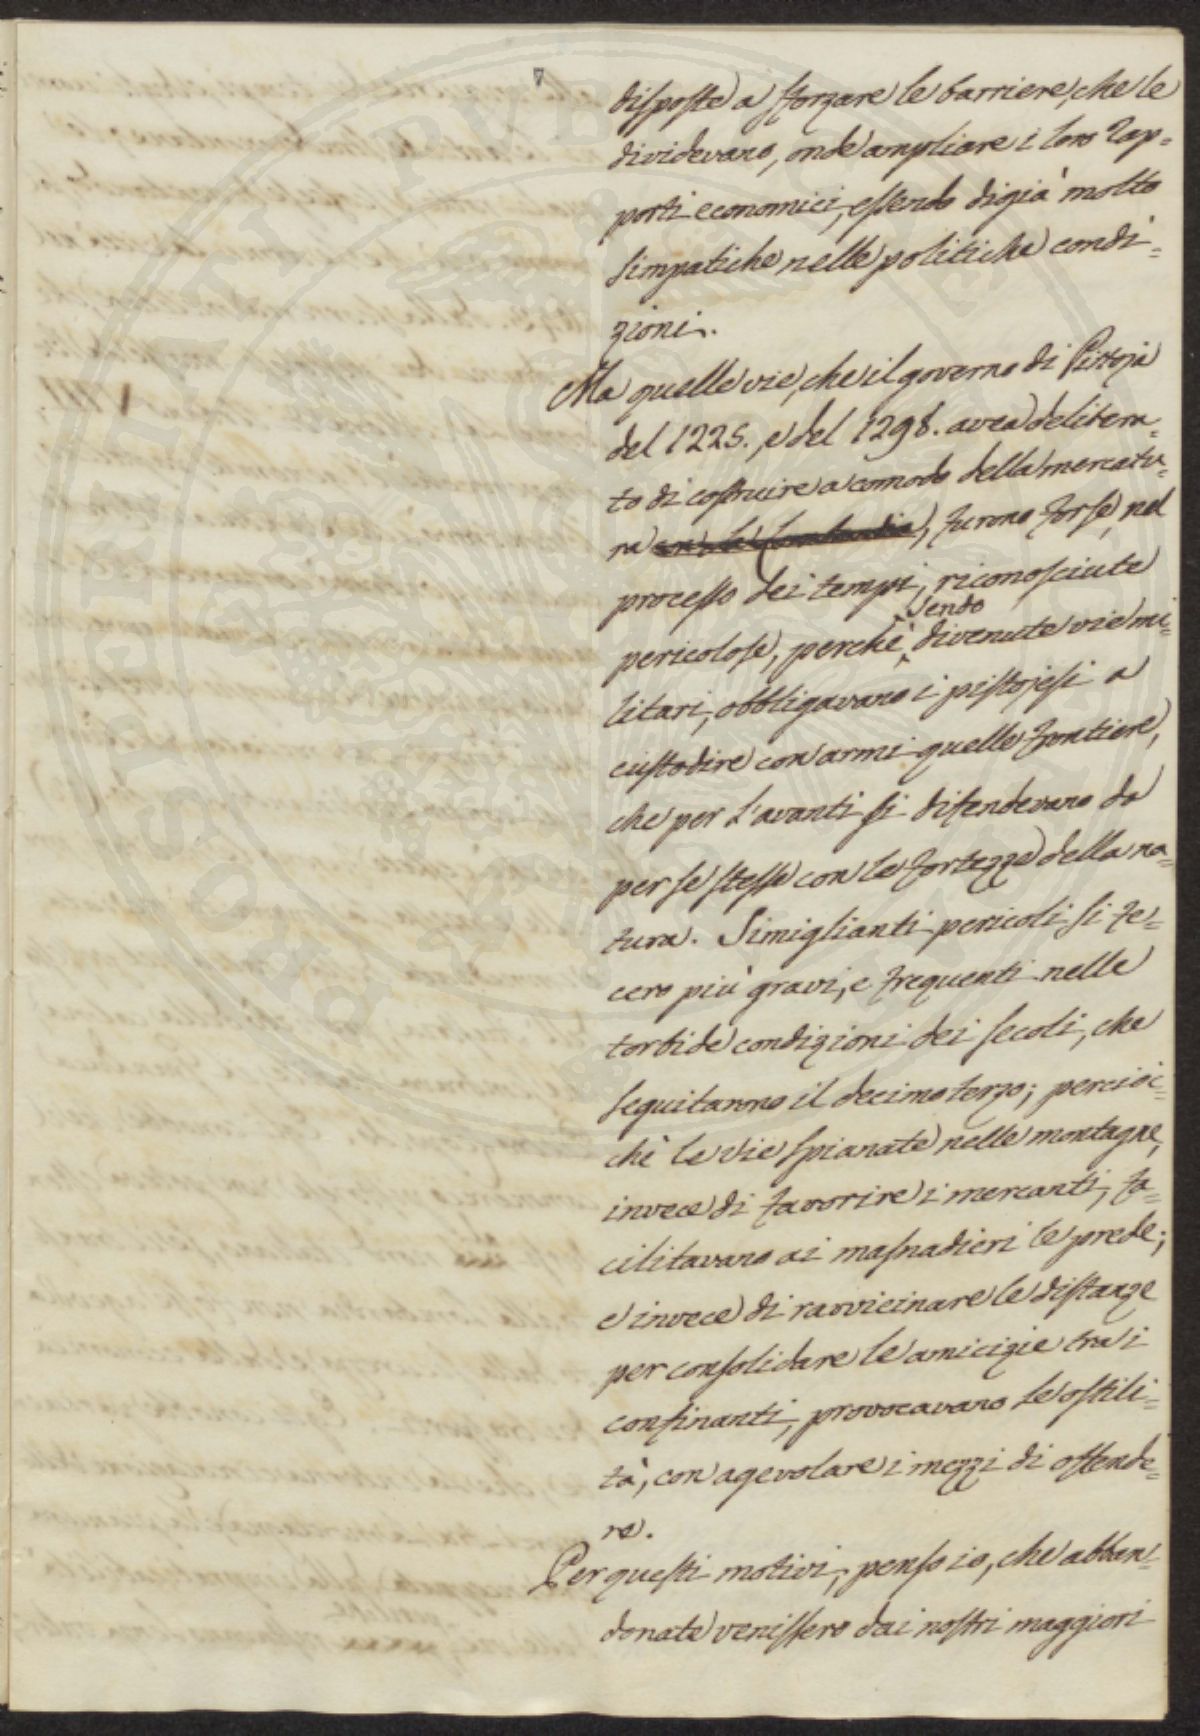 disposte a sforzare le barriere, che le
dividevano, onde ampliare i loro rap=
porti economici, essendo digià molto
simpatiche nelle politiche condi=
zioni.
Ma quelle vie, che il governo di Pistoja
del 1225., e del 1298. avea delibera=
to di costruire a comodo della mercatu=
ra con la Lombardia, furono forse, nel
processo dei tempi, riconosciute
pericolose, perchè sendo divenute vie mi=
litari, obbligavano i pistojesi a
custodire con armi quelle frontiere,
che per l'avanti si difendevano da
per se stesse con le fortezze della na=
tura. Simiglianti pericoli si fe=
cero più gravi, e frequenti nelle
torbide condizioni dei secoli, che
seguitarono il decimoterzo; percioc=
chè le vie spianate nelle montagne,
invece di favorire i mercanti, fa=
cilitavano ai masnadieri le prede;
e invece di ravvicinare le distanze
per consolidare le amicizie tra i
confinanti, provocavano le ostili=
tà, con agevolare i mezzi di offende=
re.
Per questi motivi, penso io, che abban=
donate venissero dai nostri maggiori